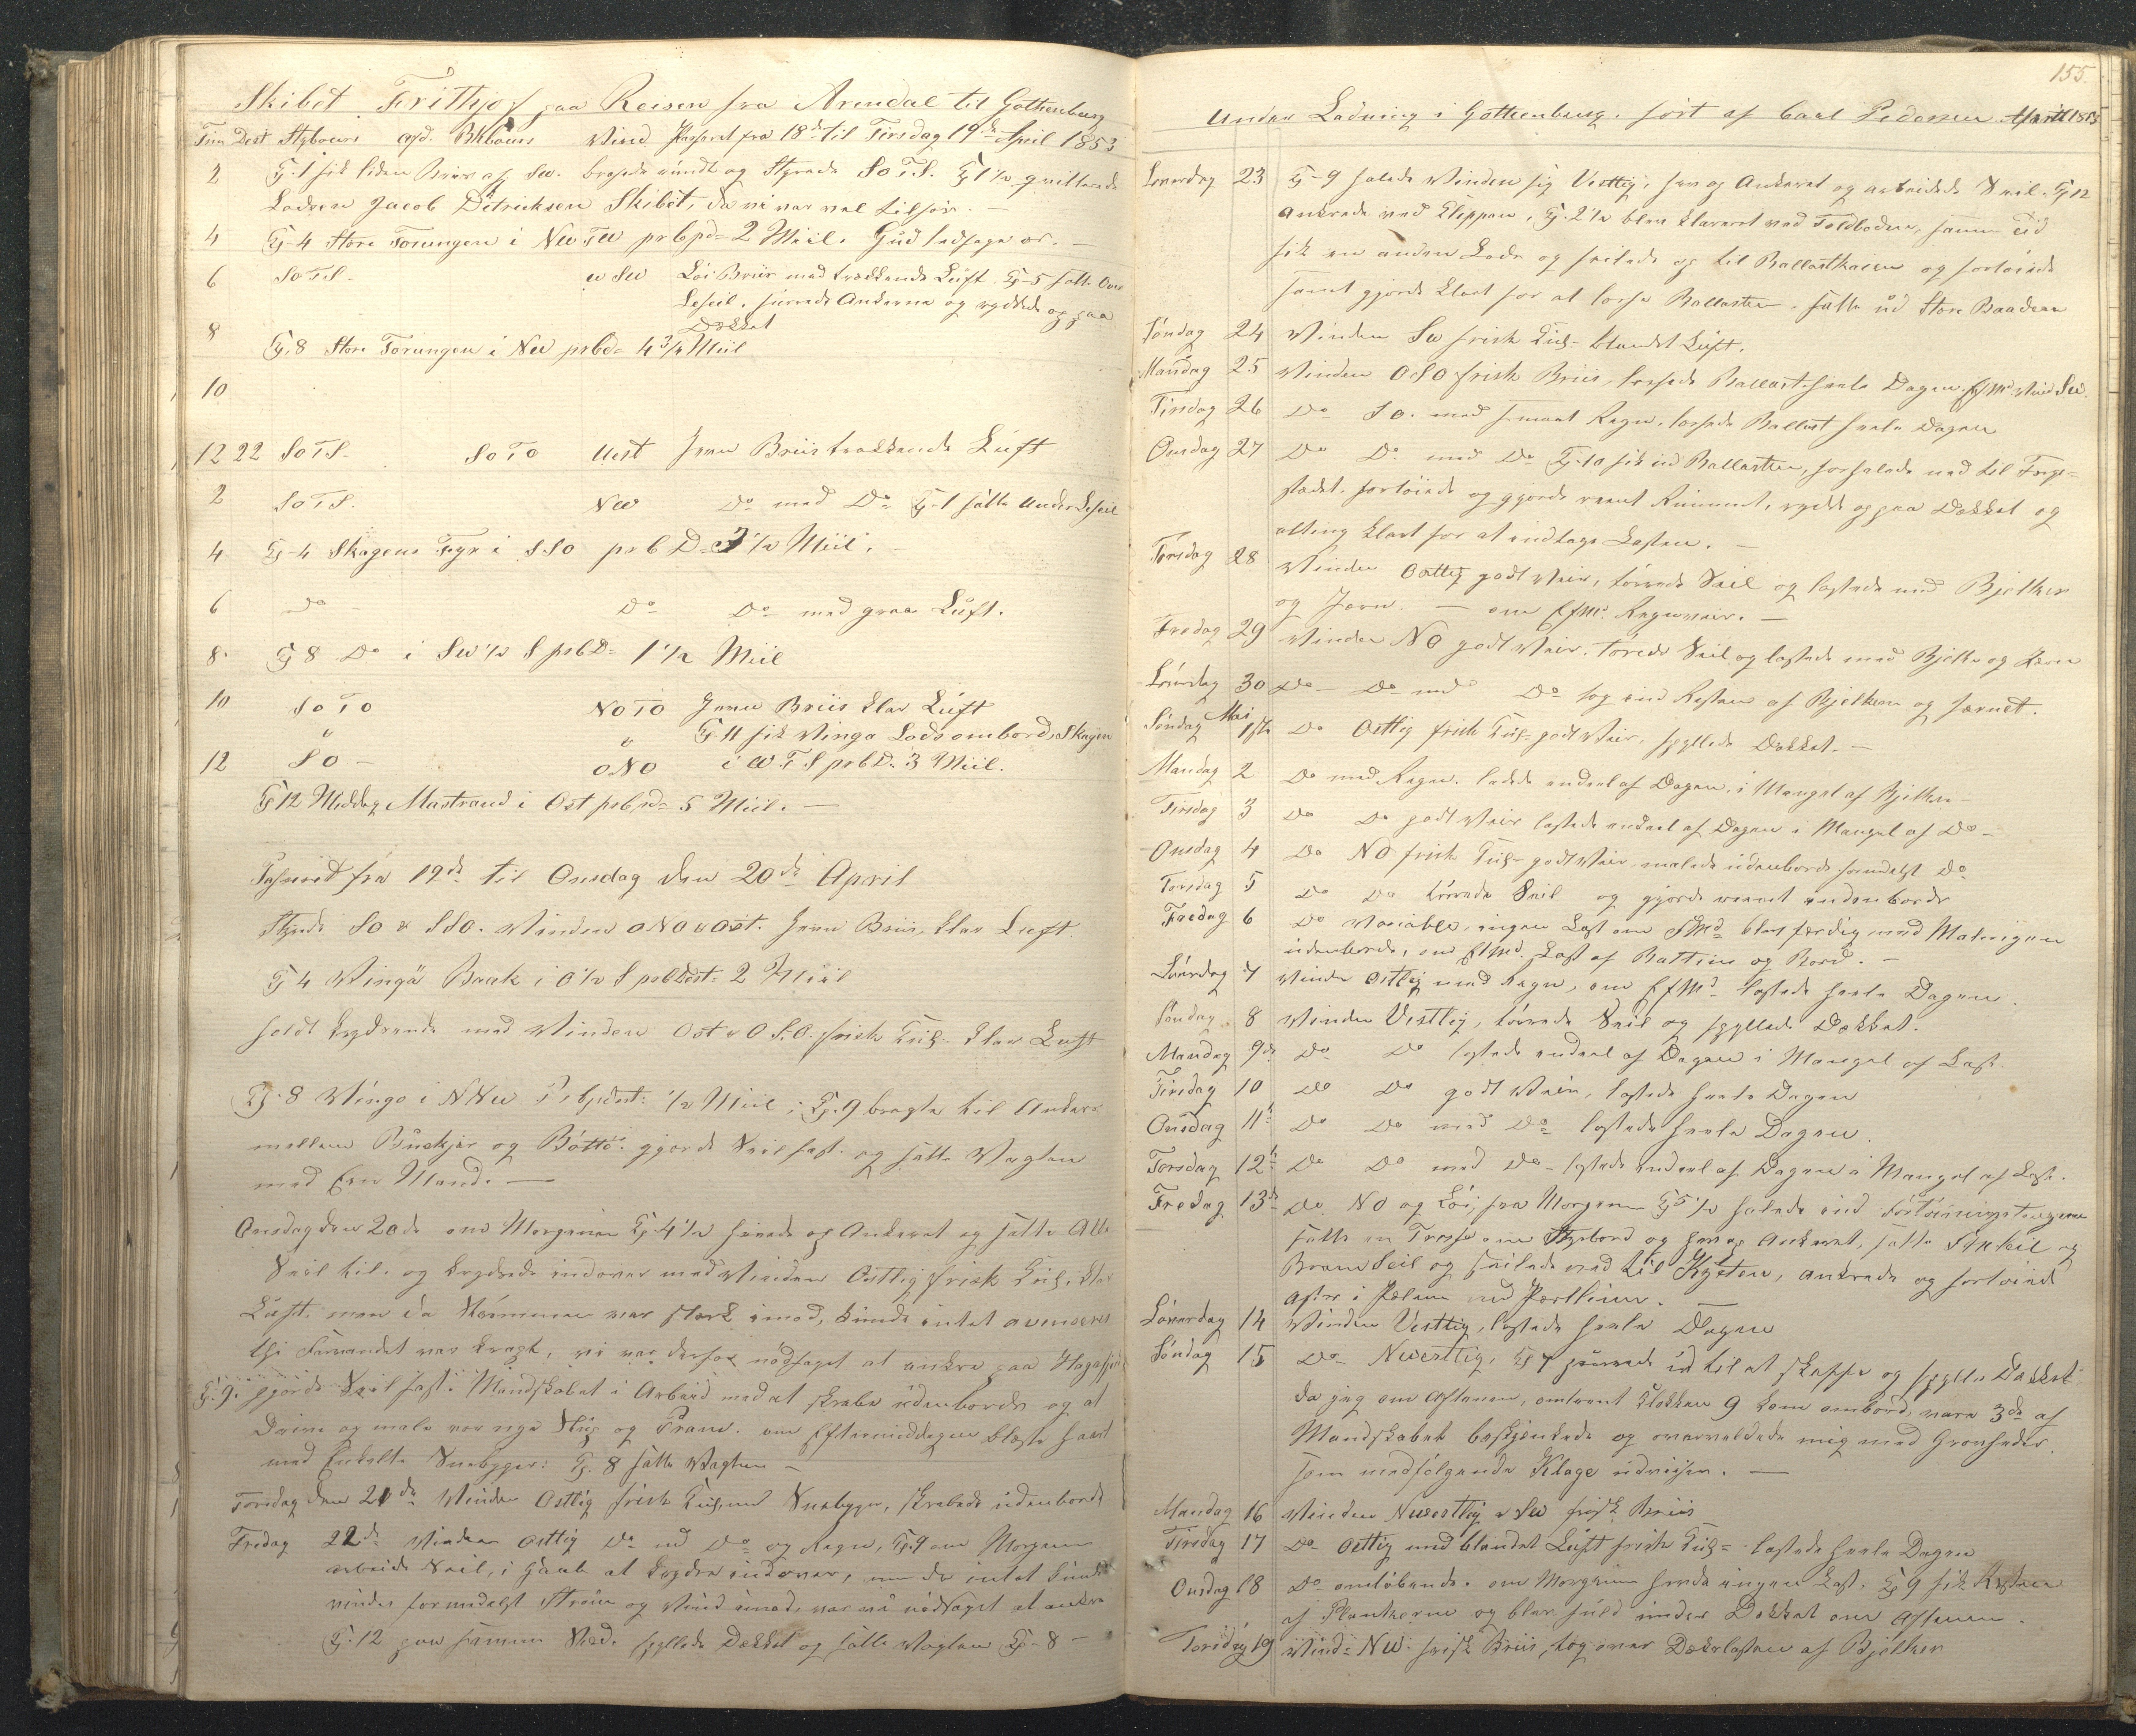 Skibet Frithjof paa Reisen fra Arendal til Gothenburg
Tim Dest Stybours afd. Bkbours Wind Passeret fra 18de til Tirsdag 19de April 1853
2 Kl. 1 fik liden Briis af Sw. brasede rundt og Styrede SoTS. Kl 1½ qvitterede
Lodsen Jacob Ditricksen Skibet, da vi var vel tilsjøs. —
4 Kl-4 Store Torungen i NwTw pr Cpd= 2 Miil. Gud ledsage os. —
6 SoTS. wSw Løi Briis med trækkende Luft. Kl-5 satte Over
Leseil. surrede Ankerne og ryddede op paa
Dækket
8 Kl. 8 Store Torungen i Nw prCd= 4¾ Miil
10
12 22 SoTS. SoTo West Jevn Briis trækkende Luft
2 SoTS. Nw Do med Do Kl-1 satte Under Leseil
4 Kl-4 Skagens Fyr i SSO pr C D= 3½ Miil. —
6 Do Do Do med graa Luft.
8 Kl 8 Do i Sw½S prCD= 1½ Miil
10 SoTo NoTo Jevn Briis klar Luft
" " Kl 11 fik Winga Lods ombord, Skagen
12 SO — ONO i WTS prCD. 3 Miil.
Kl 12 Middag Mastrand i Ost prCpd= 5 Miil. —
Passeret fra 19de til Onsdag den 20de April
Styrede SO & SSO. Winden ONO & Ost. Jevn Briis, klar Luft.
Kl 4 Wingö Baak i O½S prCDest= 2 Miil
holdt krydsende med Winden Ost & OSO. frisk Kul- klar Luft
Kl. 8 Winga i NNw PrCpdest: ½ Miil; Kl. 9 bragte til Ankers
mellem Buskjær og Böttö. gjorde Seil fast. og satte Vagten
med Een Mand. —
Onsdag den 20de om Morgenen Kl. 4½ hivede op Ankeret og satte Alle
Seil til. og krydsede indover med Winden Ostlig frisk Kul. klar
Luft. men da Strømmen var stærk imod, kunde intet avanceres
thi Farvandet var trangt, vi var derfor nødsaget at ankre paa
Kl. 9. gjorde Seil fast. Mandskabet i Arbeid med at skrabe udenbords og at
Drive og male vor nye Slup og Pram. om Eftermiddagen blæste haart
med Enkelte Sneebyger: Kl. 8 satte Vagten —
Torsdag den 21de Winden Ostlig frisk Kul, med Sneebyger, skrabede udenbords
Fredag 22de Winden Ostlig Do med Do og Regn, Kl. 9 om Morgenen
arbeide Seil, i Gank at krydse indover, men da intet kunde
vindes formedelst Strøm og Wind imod, var vi nødsaget at ankre
Kl. 12 paa samme Sted. spyllede Dækket og satte Vagten Kl-8 —
155.
Under Ladning i Gothenburg. ført af Carl Pedersen April 1853
Løverdag 23 Kl-9 halede Winden sig Vestlig, hev op Ankeret og arbeidede Seil. Kl 12
Ankrede ved Klippen, Kl. 2½ blev klareret ved Toldboden, samme tid
fik en anden Lods og seilede op til Ballastkaien og fortøiede
samt gjorde klart for at losse Ballasten. satte ud Store Baaden
Søndag 24 Winden Sw frisk Kul- blandet Luft.
Mandag 25 Winden OSO frisk Briis, lossede Ballast heele Dagen. EfMd. Wind Sw.
Tirsdag 26 Do SO. med smaat Regn. lossede Ballast heele Dagen
Onsdag 27 Do Do med Do Kl-10 fik ud Ballasten, forhalede ned til
stedet. fortøiede og gjorde reent Rummet, rydde op paa Dækket og
alting klart for at indtage Lasten. —
Torsdag 28 Winden Ostlig godt Veir, tørrede Seil og lastede med Bjelker
og Jern. — om EfMd. Regnveir. —
Fredag 29 Winden NO godt Veir. tørrede Seil og lastede med Bjelke og Jern
Løverdag 30 Do — Do med Do tog ind Resten af Bjelkerne og Jernet.
Søndag Mai 1ste Do Ostlig frisk Kul- godt Veir, spyllede Dækket. —
Mandag 2 Do med Regn. ladede endeel af Dagen, i Mangel af Bjelker —
Tirsdag 3 Do Do godt Veir lastede endeel af Dagen i Mangel af Do —
Onsdag 4 Do NO frisk Kul- godt Veir malede udenbords Do
Torsdag 5 Do Do tørrede Seil og gjorde reent indenbords
Fredag 6 Do Variable, ingen Last om FMd. blev færdig med Malingen
udenbords, om EfMd. Last af Battins og Bord. —
Løverdag 7 Winden Ostlig med Regn, om EfMd. lastede heele Dagen.
Søndag 8 Winden Vestlig, tørrede Seil og spyllede Dækket.
Mandag 9de Do Do lastede endeel af Dagen i Mangel af Last.
Tirsdag 10 Do Do godt Veir, lastede heele Dagen
Onsdag 11te Do Do med Do lastede heele Dagen.
Torsdag 12te Do Do med Do- lastede endeel af Dagen i Mangel af Last.
Fredag 13de Do NO og Løi, fra Morgenen Kl 5½ halede ind Fortøiningstougene
satte en Trosse om Styrbord og hev op Ankeret, satte Stakseil og
Bram Seil og seilede ned til Kysten, ankrede og fortøiede
After i Pælene
Løverdag 14 Winden Vestlig, lastede heele Dagen
Søndag 15 Do — Nwestlig, Kl 7 purrede ud til at skaffe og spylle Dækket.
da jeg om Aftenen, omtrent Klokken 9 kom ombord, vare 3de af
Mandskabet beskjenkede og overvældede mig med Grovheder.
som medfølgende Klage udviser. —
Mandag 16 Winden Nwestlig & Sw frisk Briis
Tirsdag 17 Do Ostlig med blandet Luft frisk Kul- lastede heele Dagen
Onsdag 18 Do omløbende. om Morgenen havde ingen Last. Kl 9 fik Resten
af Plankerne og blev fuld under Dækket om Aftenen.
Torsdag 19 Wind= Nw. frisk Briis, tog over Dækslasten af Bjelker